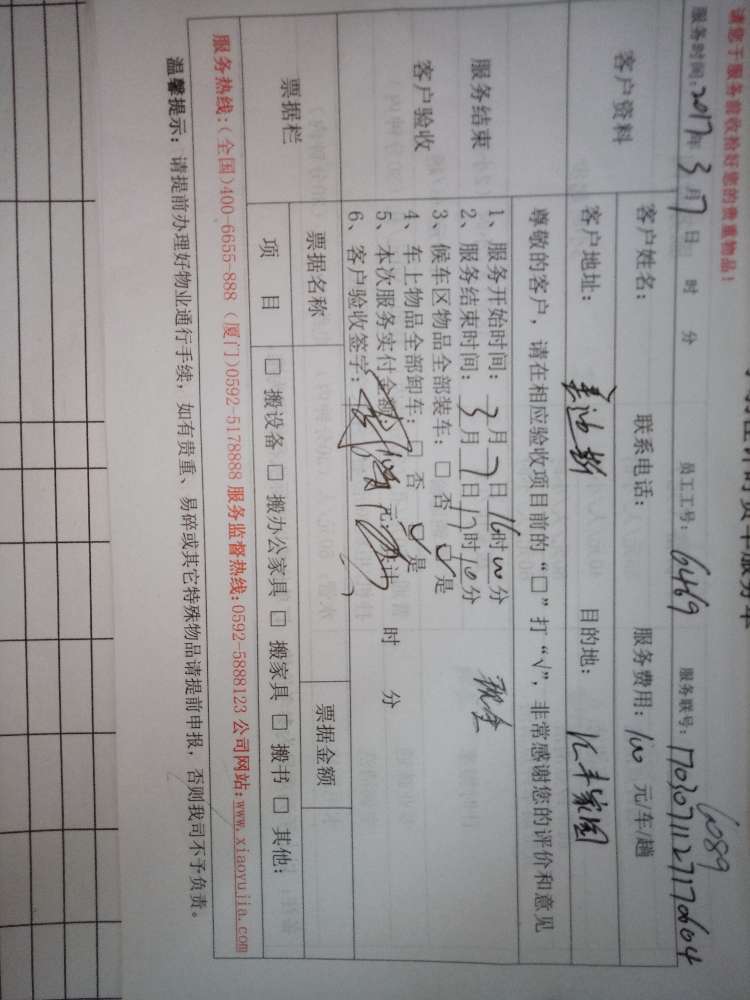 请您于服务前收检好您的贵重物品！
服务时间：2017年3月7日 时 分 员工工号：6469 服务联号：
6089
客户资料
客户姓名： 联系电话： 服务费用：100 元/车/趟
客户地址： 目的地：汇丰家园
尊敬的客户，请在相应验收项目前的“□”打“√”，非常感谢您的评价和意见
服务结束
客户验收
1、服务开始时间：3月7日16时00分
2、服务结束时间：3月7日17时10分 现金
3、候车区物品全部装车：□ 否 ☑ 是
4、车上物品全部卸车：□ 否 ☑ 是
5、本次服务实付金额 元，共计 时 分
6、客户验收签字：
票据栏
票据名称 票据金额
项 目 □ 搬设备 □ 搬办公家具 □ 搬家具 □ 搬书 □ 其他：
服务热线：(全国)400-6655-888 (厦门)0592-5178888 服务监督热线：0592-5888123 公司网站：www.xiaoyujia.com
温馨提示：请提前办理好物业通行手续，如有贵重、易碎或其它特殊物品请提前申报，否则我司不予负责。